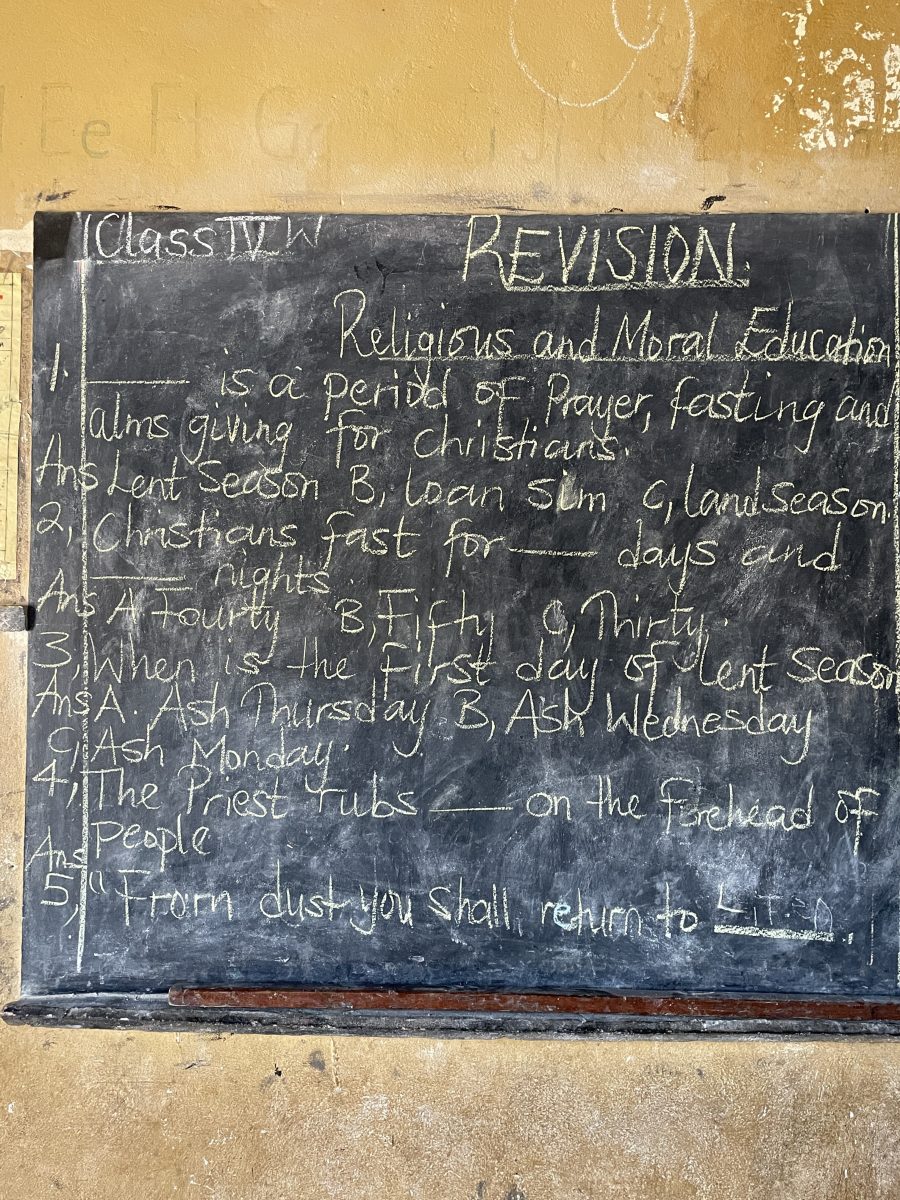 Ee F G
Class IV W
REVISION.
Religious and Moral Education
1. ____ is a period of Prayer, fasting and
alms giving for Christians.
Ans Lent Season B, loan slm C, land season.
2, Christians fast for ____ days and
____ nights.
Ans A Fourty B, Fifty C, Thirty.
3, When is the first day of lent Season
Ans A. Ash Thursday B, Ash Wednesday
C, Ash Monday.
4, The Priest rubs ____ on the forehead of
People
Ans
5, "From dust you shall return to ____.